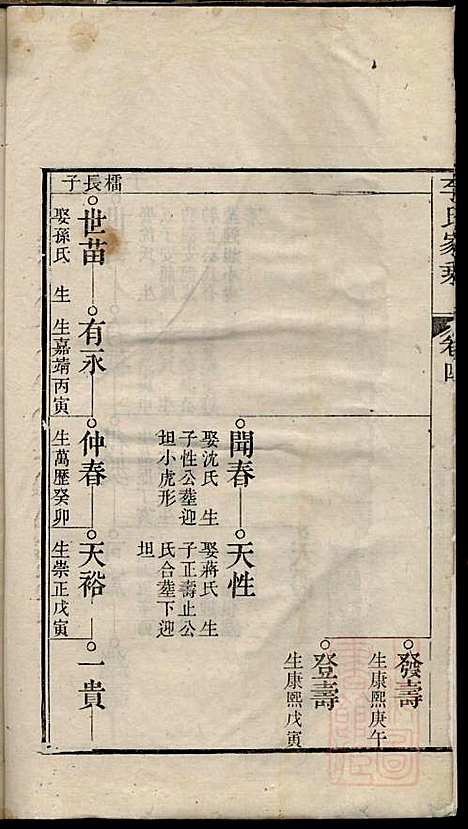 李氏家乘
卷四
發壽
生康熙庚午
登壽
生康熙戊寅
聞春
娶沈氏 生
子性公塟迎
坦小虎形
天性
娶蔣氏 生
子正壽止公
氏合塟下迎
坦
檑長子
世苗
娶孫氏 生
有永
生嘉靖丙寅
仲春
生萬歷癸卯
天裕
生崇正戊寅
一貴